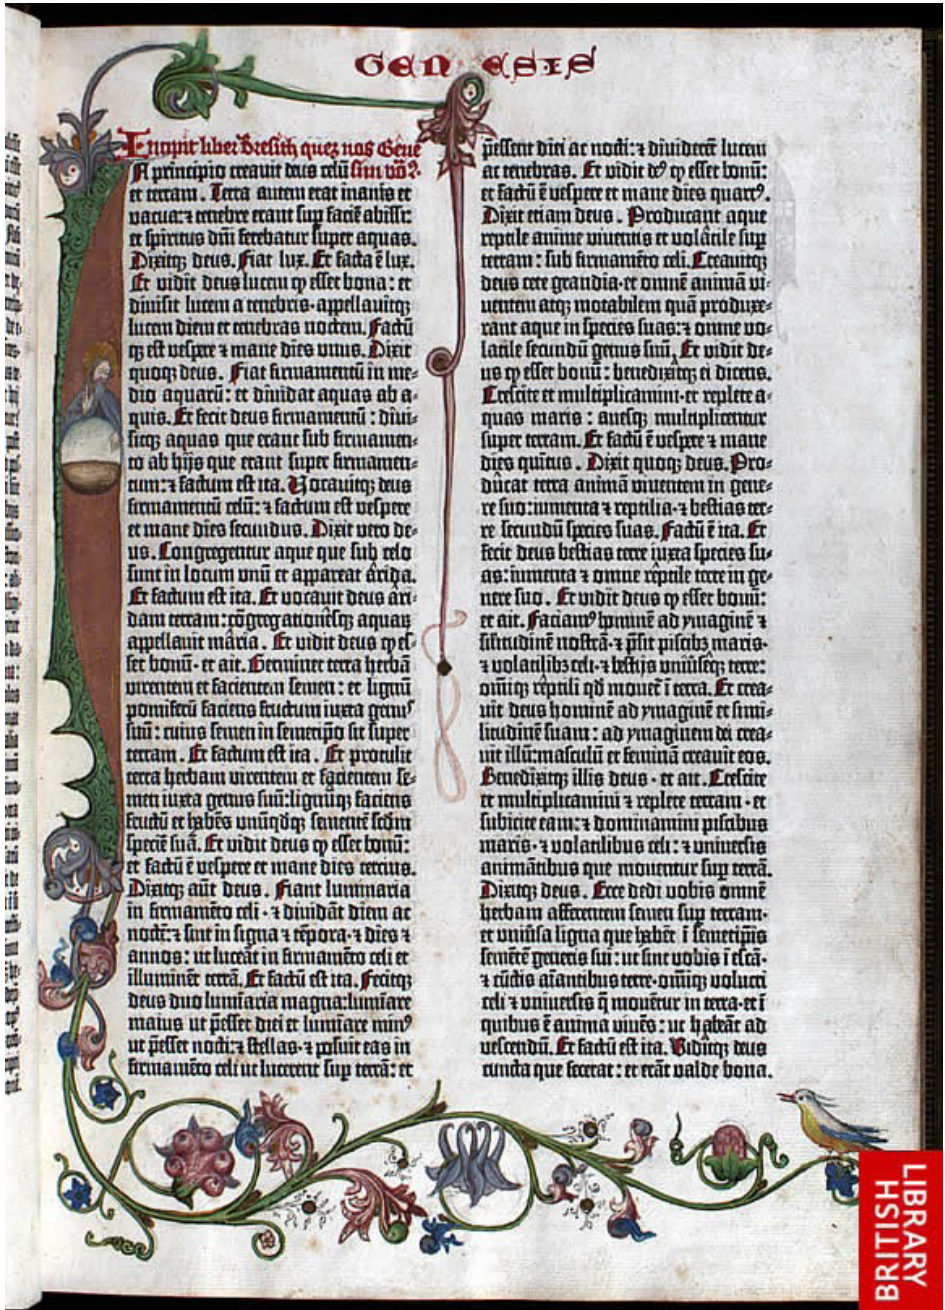 GENESIS
Incipit liber Bresith quez nos Gene
IN principio creavit deus celū sim voc̄?
et terram. Terra autem erat inanis et
vacua: ⁊ tenebre erant sup facie abissi:
et spiritus dñi ferebatur super aquas.
Dixitqꝫ deus. Fiat lux. Et facta ē lux.
Et vidit deus lucem ꝙ esset bona: et
divisit lucem a tenebris·appellavitqꝫ
lucem diem et tenebras noctem. Factū
qꝫ est vespere ⁊ mane dies unus. Dixit
quoqꝫ deus. Fiat firmamentū in me⸗
dio aquarū: et dividat aquas ab a⸗
quis. Et fecit deus firmamentū: divi⸗
sitqꝫ aquas que erant sub firmamen⸗
to ab hijs que erant super firmamen⸗
tum: ⁊ factum est ita. Vocavitqꝫ deus
firmamentū celū: ⁊ factum est vespere
et mane dies secundus. Dixit vero de⸗
us. Congregentur aque que sub celo
sunt in locum unū et appareat arida.
Et factum est ita. Et vocavit deus ari⸗
dam terram: cōgregationēsqꝫ aquaꝝ
appellavit maria. Et vidit deus ꝙ es⸗
set bonū· et ait. Germinet terra herbā
virentem et facientem semen: et lignū
pomiferū faciens fructum iuxta genus
suū: cuius semen in semetipo sit super
terram. Et factum est ita. Et protulit
terra herbam virentem et facientem se⸗
men iuxta genus suū: lignūqꝫ faciens
fructū et habēs unūqdqꝫ sementē scdm
speciē suā. Et vidit deus ꝙ esset bonū:
et factū ē vespere et mane dies tercius.
Dixitqꝫ aūt deus. Fiant luminaria
in firmamēto celi· ⁊ dividāt diem ac
noctē: ⁊ sint in signa ⁊ tēpora· ⁊ dies ⁊
annos: ut luceāt in firmamēto celi et
illuminēt terrā. Et factū est ita. Fecitqꝫ
deus duo luminaria magna: luminare
maius ut p̄esset diei et luminare minꝰ
ut p̄esset nocti: ⁊ stellas· ⁊ posuit eas in
firmamēto celi ut lucerent sup terrā: et
p̄essent diei ac nocti: ⁊ dividerēt lucem
ac tenebras. Et vidit deꝰ ꝙ esset bonū:
et factū ē vespere et mane dies quartꝰ.
Dixit etiam deus. Producant aque
reptile anime viventis et volatile sup
terram: sub firmamēto celi. Creavitqꝫ
deus cete grandia· et omnē animā vi⸗
ventem atqꝫ motabilem quā produxe⸗
rant aque in species suas: ⁊ omne vo⸗
latile secundū genus suū. Et vidit de⸗
us ꝙ esset bonū: benedixitqꝫ ei dicens.
Crescite et multiplicamini· et replete a⸗
quas maris: avesqꝫ multiplicentur
super terram. Et factū ē vespere ⁊ mane
dies quintus. Dixit quoqꝫ deus. Pro⸗
ducat terra animā viventem in gene⸗
re suo: iumenta ⁊ reptilia· ⁊ bestias ter⸗
re secundū species suas. Factū ē ita. Et
fecit deus bestias terre iuxta species su⸗
as: iumenta ⁊ omne reptile terre in ge⸗
nere suo. Et vidit deus ꝙ esset bonū:
et ait. Faciamꝰ hominē ad ymaginē ⁊
silitudinē nostrā· ⁊ p̄sit piscibꝫ maris·
⁊ volatilibꝫ celi· ⁊ bestijs universeqꝫ terre:
omīqꝫ reptili qd movet ī terra. Et crea⸗
vit deus hominē ad ymaginē et simi⸗
litudinē suam: ad ymaginem dei crea⸗
vit illū: masculū et feminā creavit eos.
Benedixitqꝫ illis deus· et ait. Crescite
et multiplicamini ⁊ replete terram· et
subicite eam: ⁊ dominamini piscibus
maris· ⁊ volatilibus celi: ⁊ universis
animātibus que moventur sup terrā.
Dixitqꝫ deus. Ecce dedi vobis omnē
herbam afferentem semen sup terram·
et universa ligna que habēt ī semetipis
semētē generis sui: ut sint vobis ī escā·
⁊ cūctis aīantibus terre· omīqꝫ volucri
celi ⁊ universis q̄ movētur in terra· et ī
quibus ē anima vivēs: ut habeāt ad
vescendū. Et factū est ita. Viditqꝫ deus
cuncta que fecerat: et erāt valde bona.
BRITISH
LIBRARY